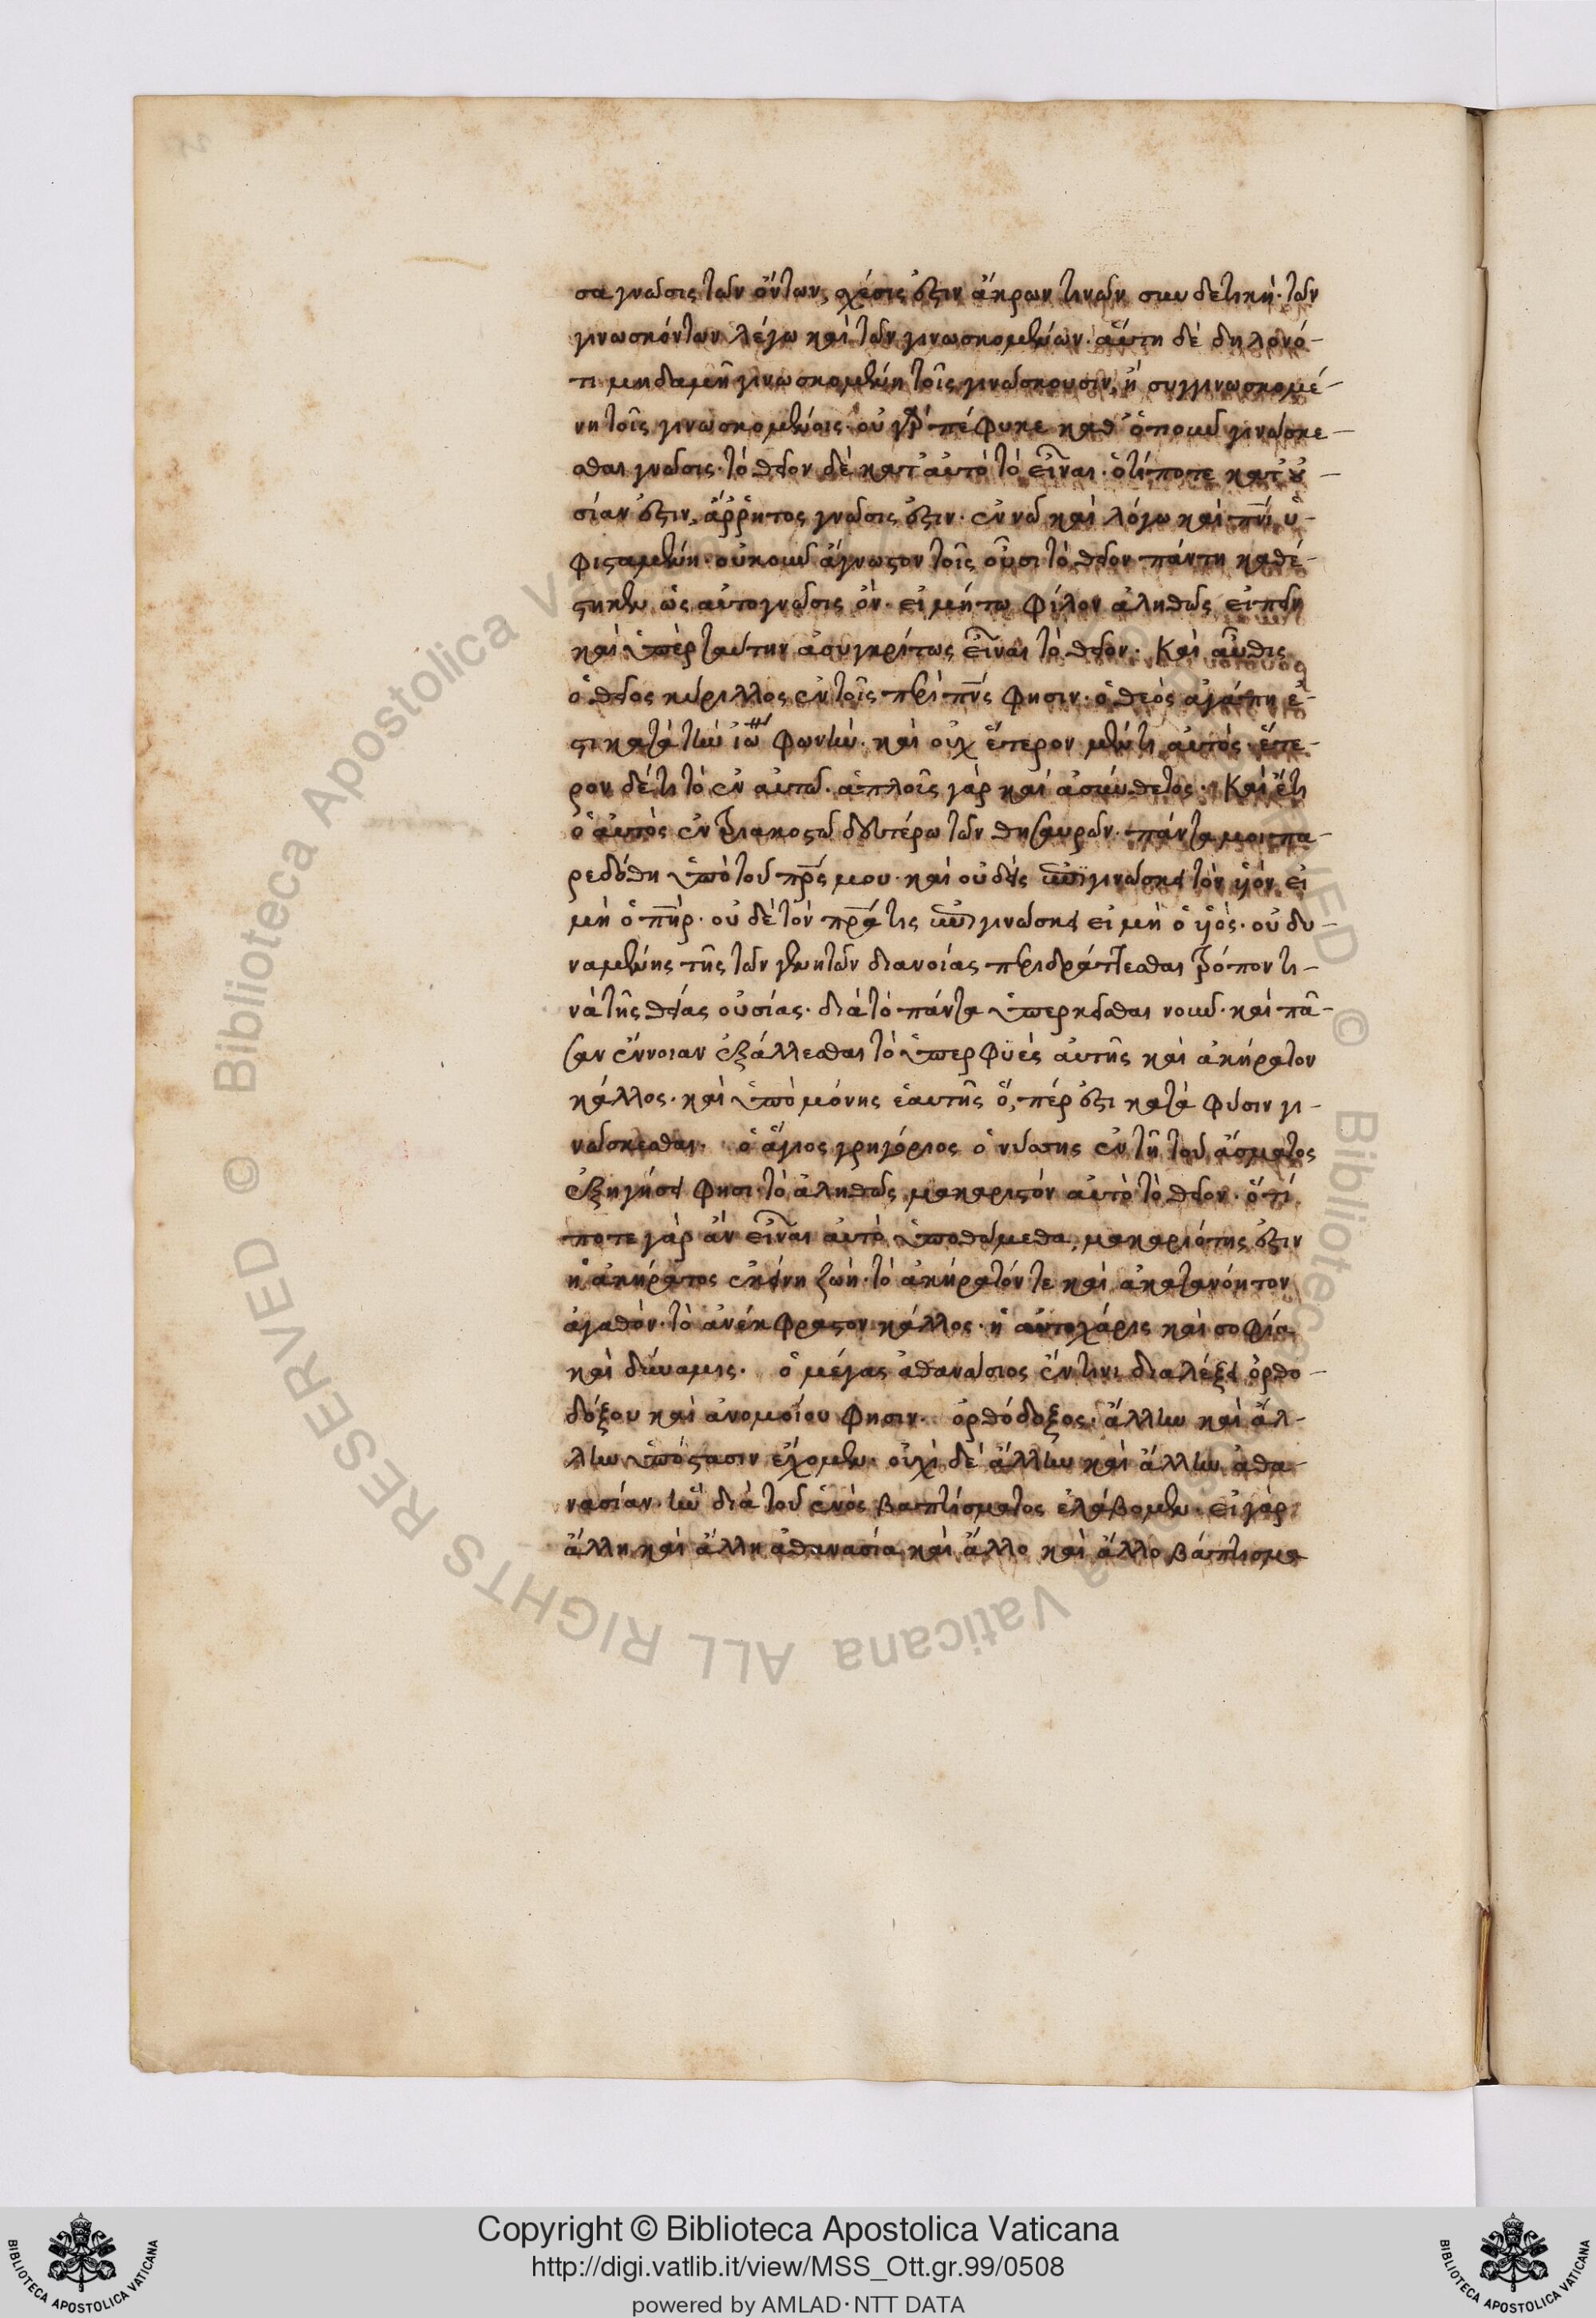 σα γνῶσις τῶν ὄντων, σχέσις ἐστιν ἄκρων τινῶν συνδετική· τῶν
γινωσκόντων λέγω καὶ τῶν γινωσκομένων· αὕτη δὲ δηλονό-
τι μηδαμῆ γινωσκομένη τοῖς γινώσκουσιν, ἢ συγγινωσκομέ-
νη τοῖς γινωσκομένοις· οὐ γὰρ πέφυκε καθ' ὁποιοῦν γινώσκε-
σθαι γνῶσις· τὸ θεῖον δὲ κατ' αὐτὸ τὸ εἶναι· ὁτίποτε κατ' οὐ-
σίαν ἐστιν, ἄρρητος γνῶσις ἐστιν· ἐν νῶ καὶ λόγω καὶ πνι ὑ-
φισταμένη· οὐκοῦν ἄγνωστον τοῖς οὖσι τὸ θεῖον πάντη καθέ-
στηκεν ὡς αὐτογνῶσις ὄν· εἰ μή τω φίλον ἀληθῶς εἰπεῖν
καὶ ὑπὲρ ταύτην ἀσυγκρίτως εἶναι τὸ θεῖον· Καὶ αὖθις
ὁ θεῖος κύριλλος ἐν τοῖς περὶ πνς φησιν· ὁ θεὸς ἀγάπη ἐ-
στι κατὰ τὴν ἰω φωνήν· καὶ οὐχ ἕτερον μέν τι αὐτὸς· ἕτε-
ρον δέ τι τὸ ἐν αὐτῶ· ἁπλοῦς γὰρ καὶ ἀσύνθετος· Καὶ ἔτι
ὁ αὐτὸς ἐν τριακοστῶ δευτέρω τῶν θησαυρῶν· πάντα μοι πα-
ρεδόθη ὑπὸ τοῦ πρς μου· καὶ οὐδεὶς ἐπιγινώσκει τὸν υἱόν εἰ
μὴ ὁ πηρ· οὐδὲ τὸν πρα τις ἐπιγινώσκει εἰ μὴ ὁ υἱός· οὐ δυ-
ναμένης τῆς τῶν γεννητῶν διανοίας περιδράττεσθαι τρόπον τι-
νὰ τῆς θείας οὐσίας· διὰ τὸ πάντα ὑπερκεῖσθαι νοῦν· καὶ πᾶ-
σαν ἔννοιαν ἐξάλλεσθαι τὸ ὑπερφυὲς αὐτῆς καὶ ἀκήρατον
κάλλος· καὶ ὑπὸ μόνης ἑαυτῆς ὅ, πέρ ἐστι κατὰ φύσιν γι-
νώσκεσθαι· ὁ ἅγιος γρηγόριος ὁ νύσσης ἐν τῆ τοῦ ἄσματος
ἐξηγήσει φησι· τὸ ἀληθῶς μακαριστόν αὐτὸ τὸ θεῖον· ὅτί
ποτε γὰρ ἂν εἶναι αὐτὸ ὑποθώμεθα, μακαριότης ἐστιν
ἡ ἀκήρατος ἐκείνη ζωή· τὸ ἀκήρατόν τε καὶ ἀκατανόητον
ἀγαθόν· τὸ ἀνέκφραστον κάλλος· ἡ αὐτοχάρις καὶ σοφία
καὶ δύναμις· ὁ μέγας ἀθανάσιος ἔν τινι διαλέξει ὀρθο-
δόξου καὶ ἀνομοίου φησιν· ὀρθόδοξος· ἄλλην καὶ ἄλ-
λην ὑπόστασιν ἔχομεν· οὐχὶ δὲ ἄλλην καὶ ἄλλην ἀθα-
νασίαν· ἣν διὰ τοῦ ἑνὸς βαπτίσματος ἐλάβομεν· εἰ γὰρ
ἄλλη καὶ ἄλλη ἀθανασία καὶ ἄλλο καὶ ἄλλο βάπτισμα
© Biblioteca Apostolica Vaticana ALL RIGHTS RESERVED
Copyright © Biblioteca Apostolica Vaticana
http://digi.vatlib.it/view/MSS_Ott.gr.99/0508
powered by AMLAD·NTT DATA
BIBLIOTECA APOSTOLICA VATICANA
BIBLIOTECA APOSTOLICA VATICANA